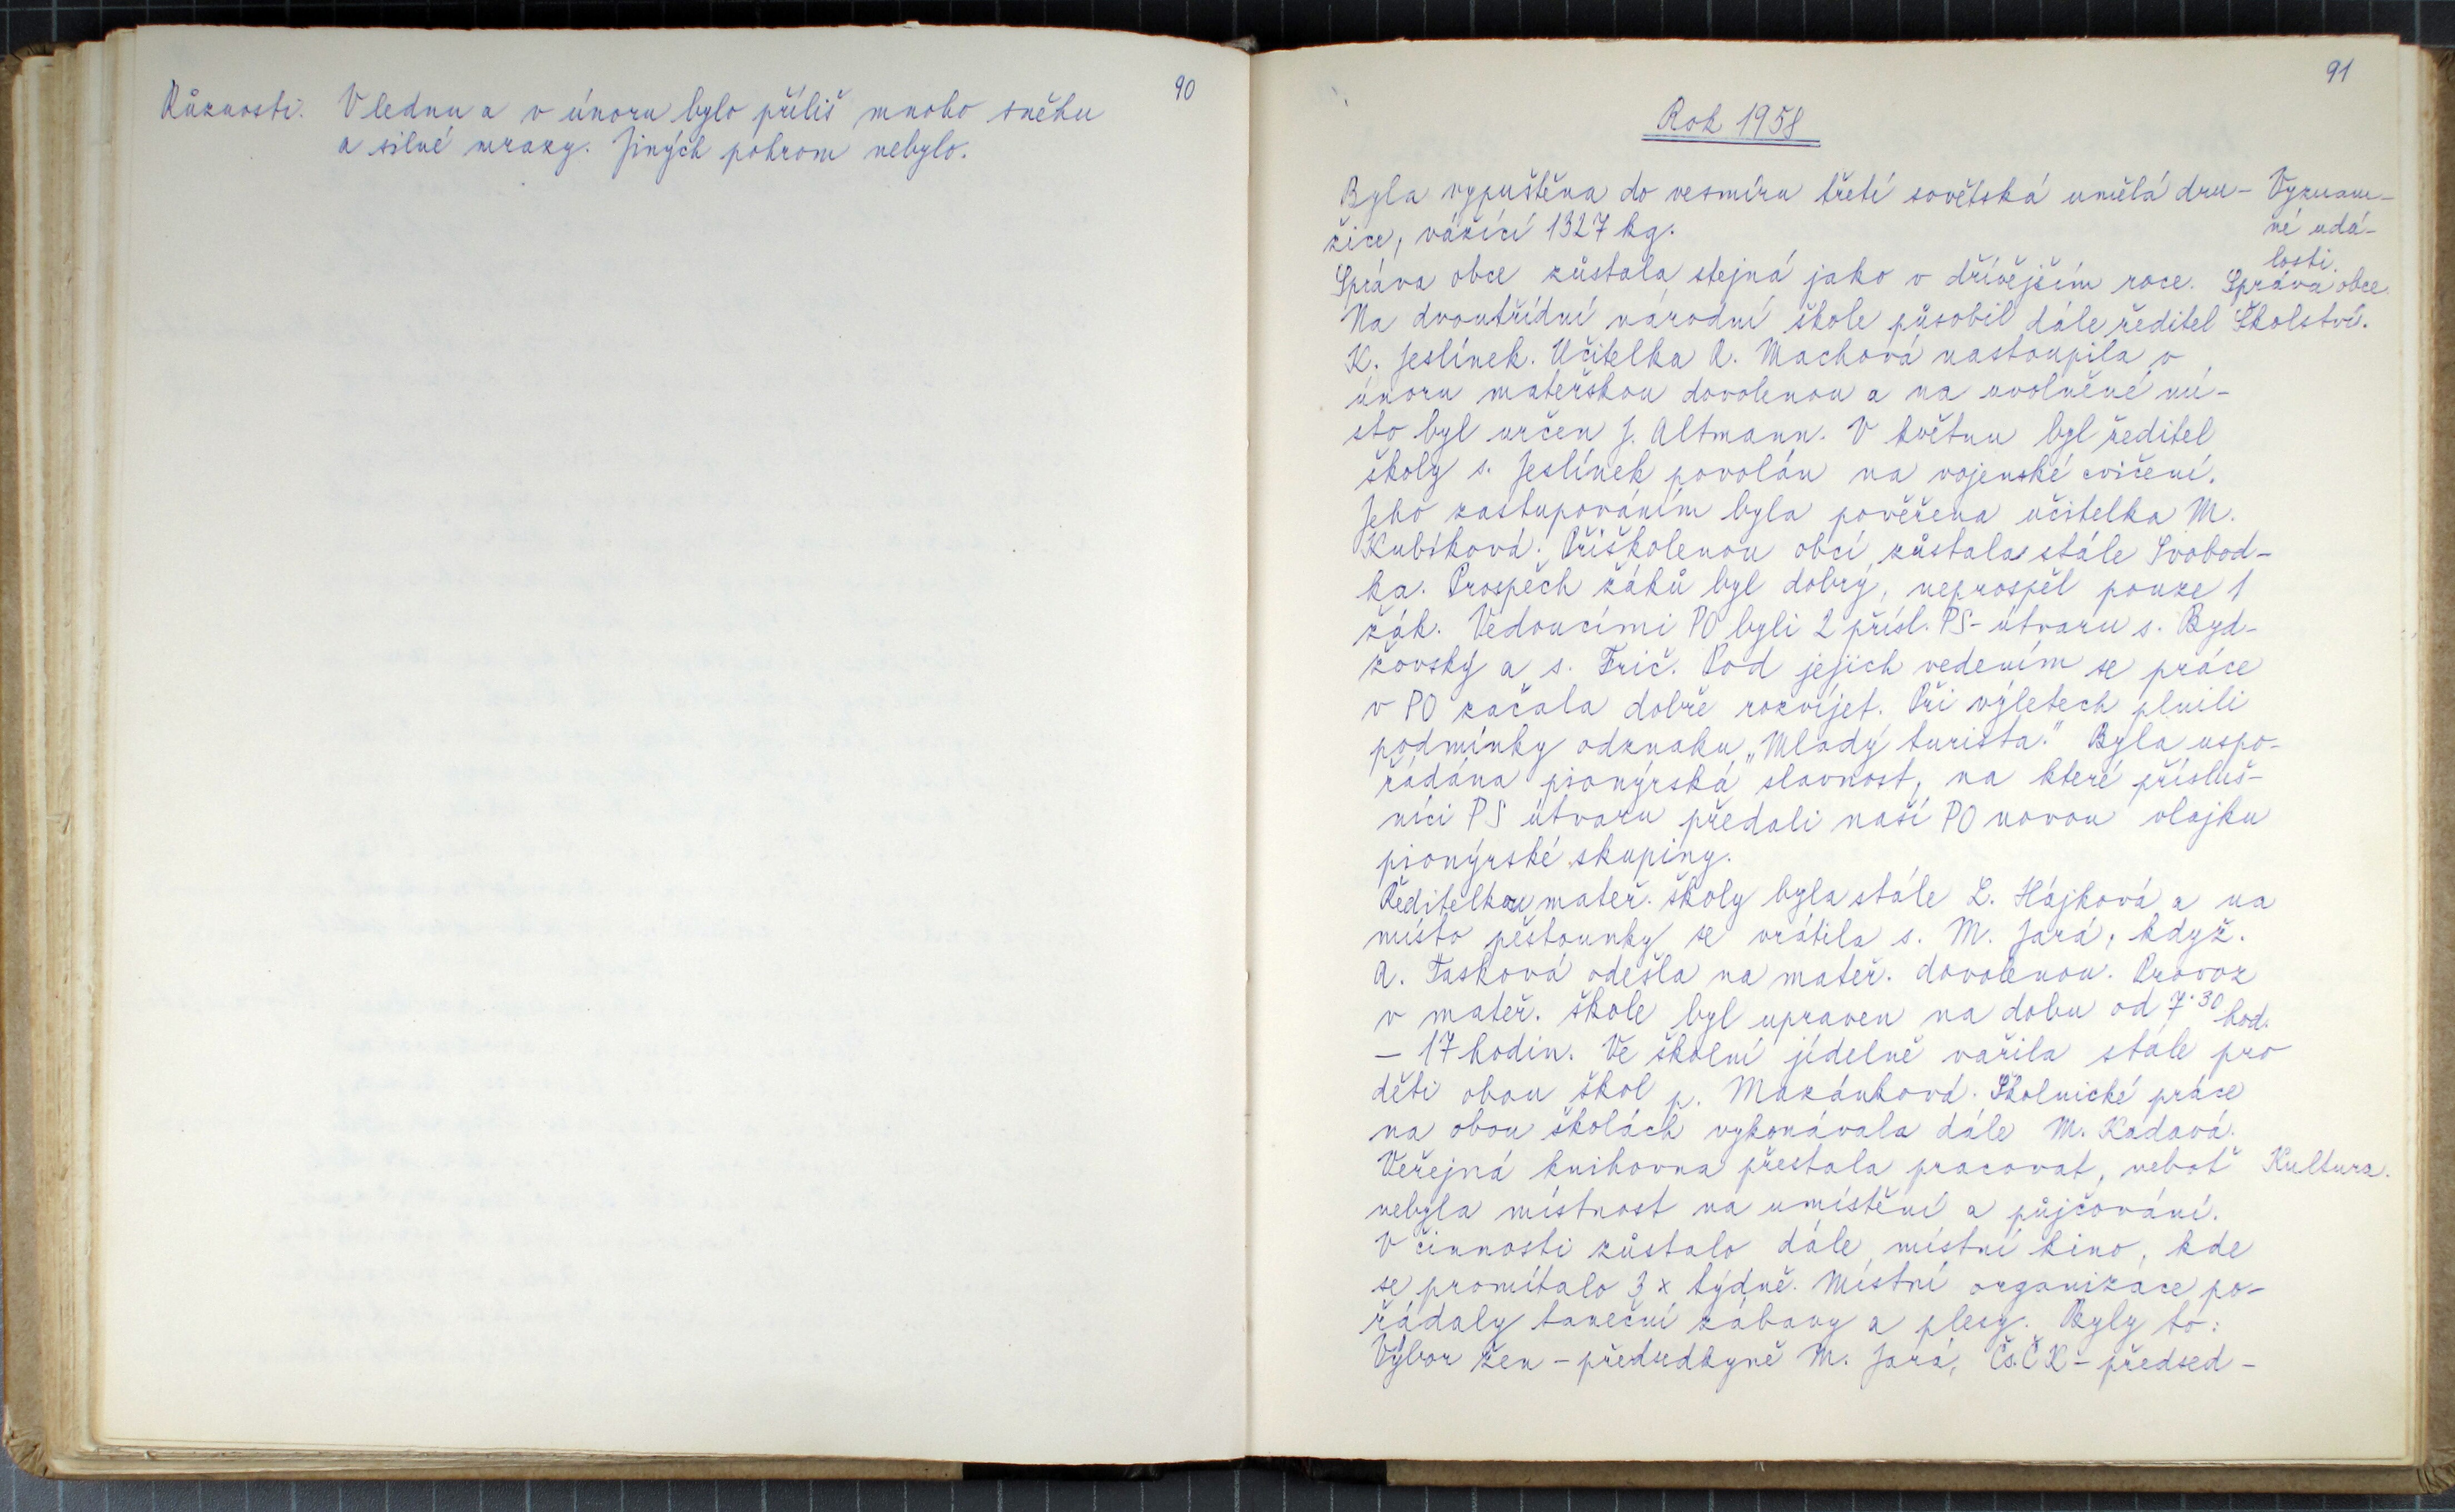 90
Různosti. V lednu a v únoru bylo příliš mnoho sněhu
a silné mrazy. Jiných pohrom nebylo.
91
Rok 1958
Byla vypuštěna do vesmíru třetí sovětská umělá dru-
žice, vážící 1327 kg.
Význam-
né udá-
losti.
Správa obce zůstala stejná jako v dřívějším roce. Správa obce.
Na dvoutřídní národní škole působil dále ředitel Školství.
K. Jeslínek. Učitelka A. Machová nastoupila v
únoru mateřskou dovolenou a na uvolněné mí-
sto byl určen J. Altmann. V květnu byl ředitel
školy s. Jeslínek povolán na vojenské cvičení.
Jeho zastupováním byla pověřena učitelka M.
Kubíková. Přiškolenou obcí zůstala stále Svobod-
ka. Prospěch žáků byl dobrý, neprospěl pouze 1
žák. Vedoucími PO byli 2 přísl. PS-útvaru s. Byd-
žovský a s. Frič. Pod jejich vedením se práce
v PO začala dobře rozvíjet. Při výletech plnili
podmínky odznaku „Mladý turista." Byla uspo-
řádána pionýrská slavnost, na které přísluš-
níci PS útvaru předali naší PO novou vlajku
pionýrské skupiny.
Ředitelkou mateř. školy byla stále L. Hájková a na
místo pěstounky se vrátila s. M. Jará, když.
A. Tasková odešla na mateř. dovolenou. Provoz
v mateř. škole byl upraven na dobu od 7.30 hod.
– 17 hodin. Ve školní jídelně vařila stále pro
děti obou škol p. Mazánková. Školnické práce
na obou školách vykonávala dále M. Kadavá.
Veřejná knihovna přestala pracovat, neboť Kultura.
nebyla místnost na umístění a půjčování.
V činnosti zůstalo dále místní kino, kde
se promítalo 3 x týdně. Místní organizace po-
řádaly taneční zábavy a plesy. Byly to:
Výbor žen – předsedkyně M. Jará, Čs.ČK – předsed-